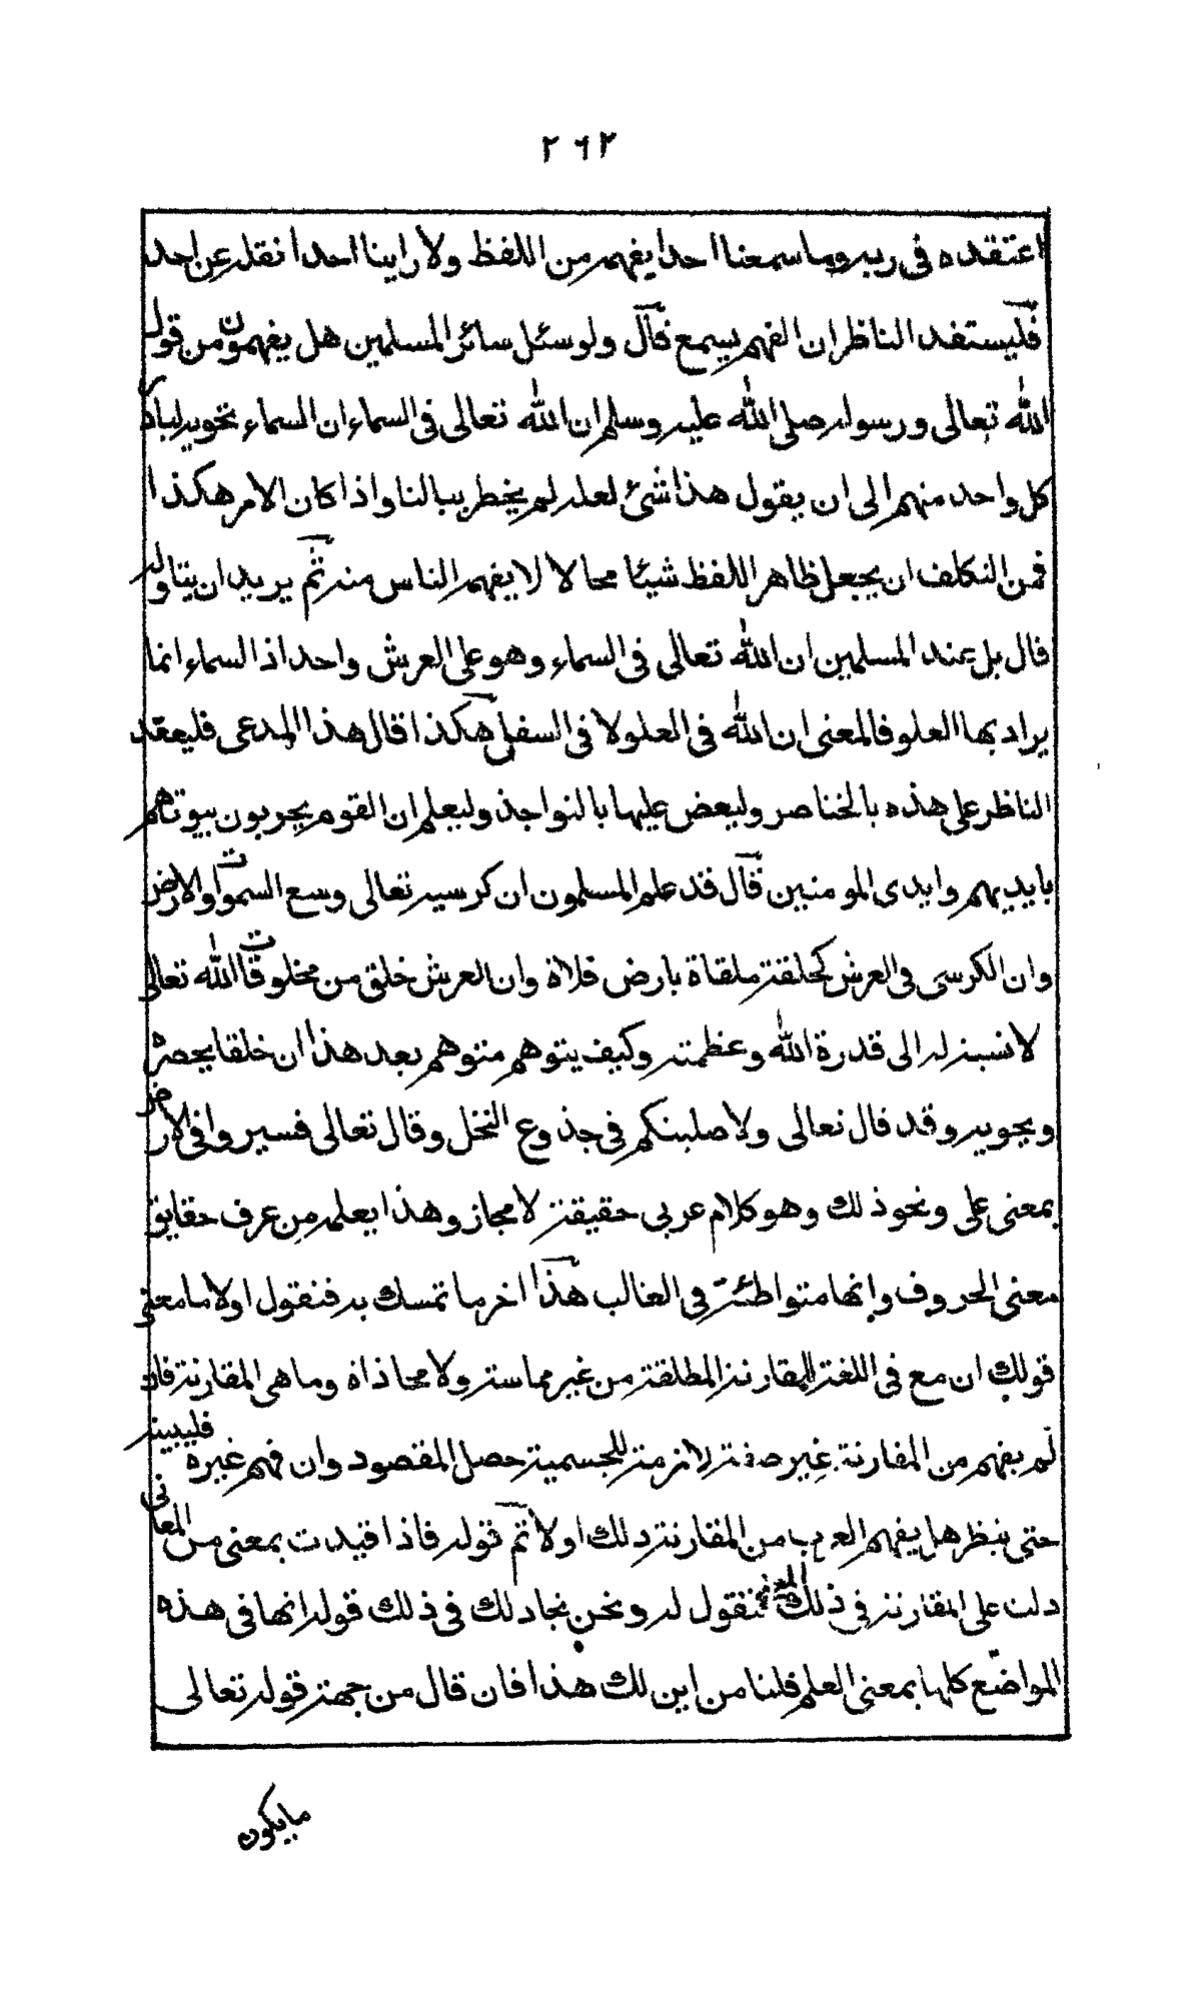 ٢٦٢
اعتقده فى ربه وما سمعنا احدا يفهمه من اللفظ ولا راينا احدا نقله عن احد
فليستفد الناظر ان الفهم يسمع قال ولو سئل سائر المسلمين هل يفهمون من قول
الله تعالى ورسوله صلى الله عليه وسلم ان الله تعالى فى السماء ان السماء تحويه لبادر
كل واحد منهم الى ان يقول هذا شئ لعله لم يخطر ببالنا واذا كان الامر هكذا
فمن التكلف ان يجعل ظاهر اللفظ شيئا محالا لا يفهمه الناس منه ثم يريد ان يتاوله
قال بل عند المسلمين ان الله تعالى فى السماء وهو على العرش واحد اذ السماء انما
يراد بها العلو فالمعنى ان الله فى العلو لا فى السفل هكذا قال هذا المدعى فليعقد
الناظر على هذه بالخناصر وليعض عليها بالنواجذ وليعلم ان القوم يخربون بيوتهم
بايديهم وايدى المومنين قال قد علم المسلمون ان كرسيه تعالى وسع السموات والارض
وان الكرسى فى العرش كحلقة ملقاة بارض فلاة وان العرش خلق من مخلوقات الله تعالى
لا نسبة له الى قدرة الله وعظمته وكيف يتوهم متوهم بعد هذا ان خلقا يحصره
ويحويه وقد قال تعالى ولاصلبنكم فى جذوع النخل وقال تعالى فسيروا فى الارض
بمعنى على ونحو ذلك وهو كلام عربى حقيقة لا مجاز وهذا يعلمه من عرف حقايق
معنى الحروف وانها متواطئة فى الغالب هذا اخر ما تمسك به فنقول اولا ما معنى
قولك ان مع فى اللغة للمقارنة المطلقة من غير مماسة ولا محاذاة وما هى المقارنة فان
لم يفهم من المقارنة غير صفة لازمة للجسمية حصل المقصود وان فهم غيره فليبينه
حتى ينظر هل يفهم العرب من المقارنة ذلك اولا ثم قوله فاذا قيدت بمعنى من المعانى
دلت على المقارنة فى ذلك المعنى فنقول له ونحن نجادلك فى ذلك قوله انها فى هذه
المواضع كلها بمعنى العلم قلنا من اين لك هذا فان قال من جهة قوله تعالى
مايكون